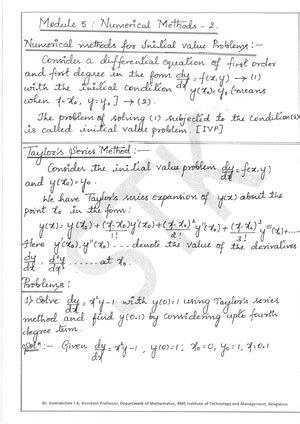 Module 5 : Numerical Methods - 2.
Numerical methods for Initial value Problems:-
Consider a differential equation of first order
and first degree in the form dy/dx = f(x,y) → (1)
with the initial condition y(x₀) = y₀ (means
when x = x₀, y = y₀] → (2).
The problem of solving (1) subjected to the condition (2)
is called initial value problem. [IVP]
Taylor's Series Method:-
Consider the initial value problem dy/dx = f(x,y)
and y(x₀) = y₀.
We have Taylor's series expansion of y(x) about the
point x₀ in the form:
y(x) = y(x₀) + (x-x₀)/1! y'(x₀) + (x-x₀)²/2! y''(x₀) + (x-x₀)³/3! y'''(x₀) + ....
Here y'(x₀), y''(x₀) ---- denote the value of the derivatives
dy/dx, d²y/dx² ...... at x₀.
Problems:
1) Solve dy/dx = x²y-1 with y(0)=1 using Taylor's series
method and find y(0.1) by considering upto fourth
degree term.
Soln:- Given dy/dx = x²y-1 ; y(0)=1 ; x₀=0, y₀=1, x=0.1
STK
Dr. Sreelakshmi T K, Assistant Professor, Department of Mathematics, BMS Institute of Technology and Management, Bengaluru